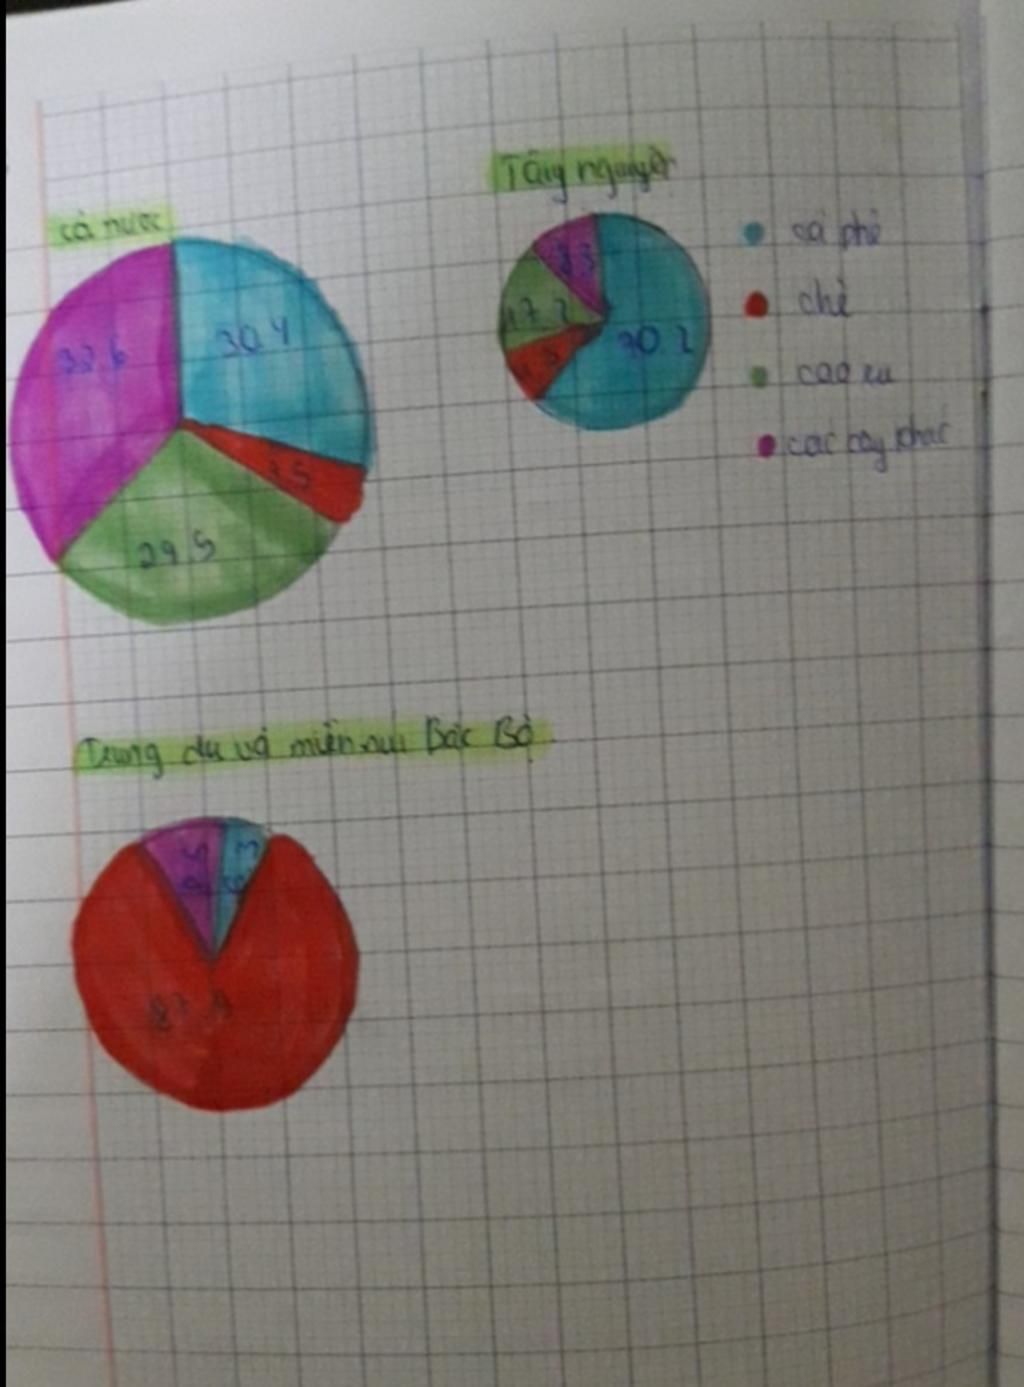 cả nước
30.4
7.5
29.5
32.6
Tây nguyên
70.2
17.2
8.3
cà phê
chè
cao su
các cây khác
Trung du và miền núi Bắc Bộ
3
87.9